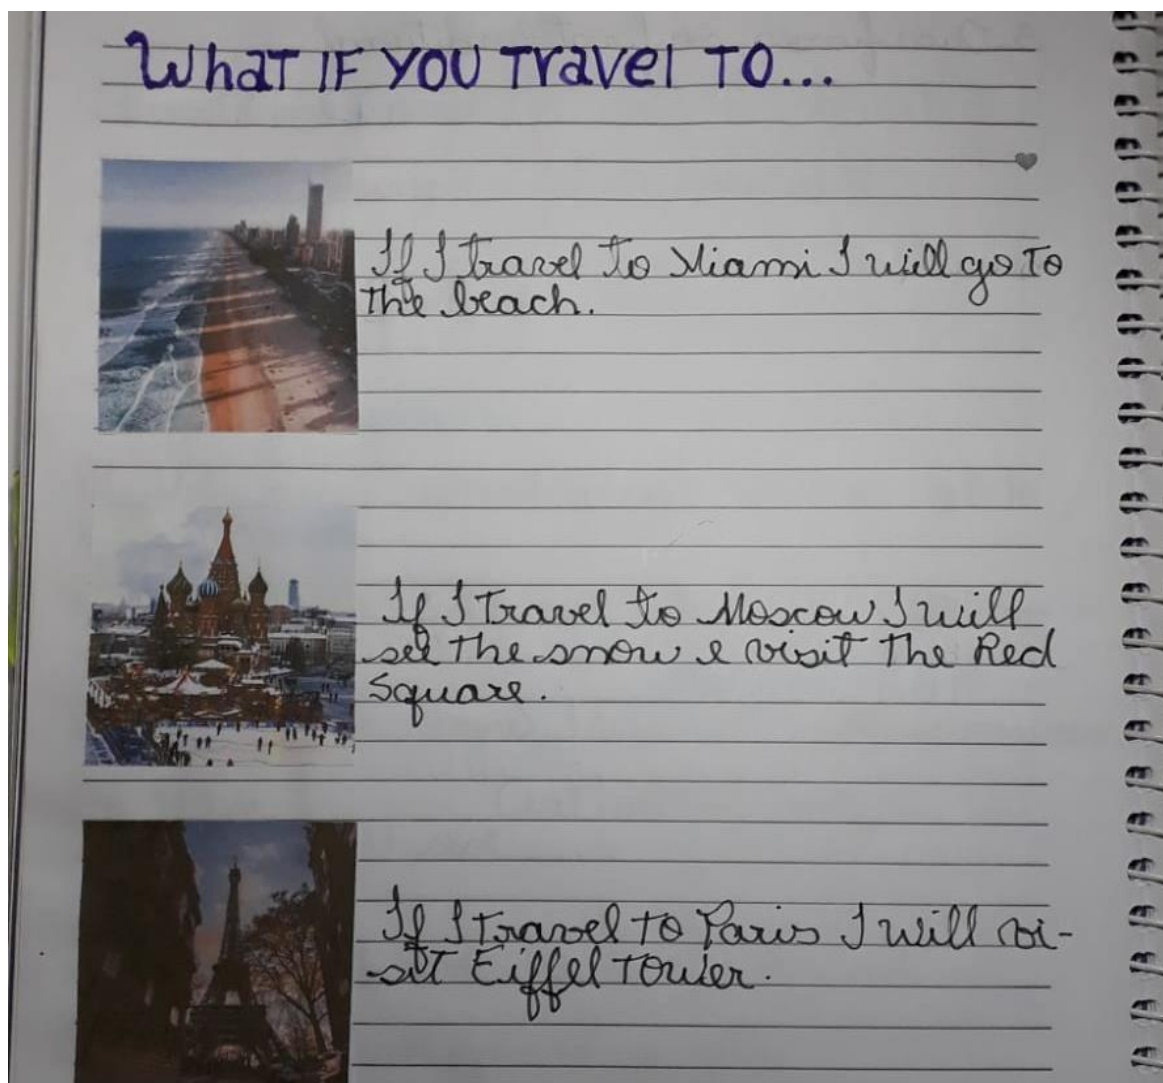 WhaT IF YOU Travel TO...
If I travel to Miami I will go To
the beach.
If I Travel to Moscow I will
see The snow e visit The Red
Square.
If I Travel to Paris I will vi-
sit Eiffel Tower.